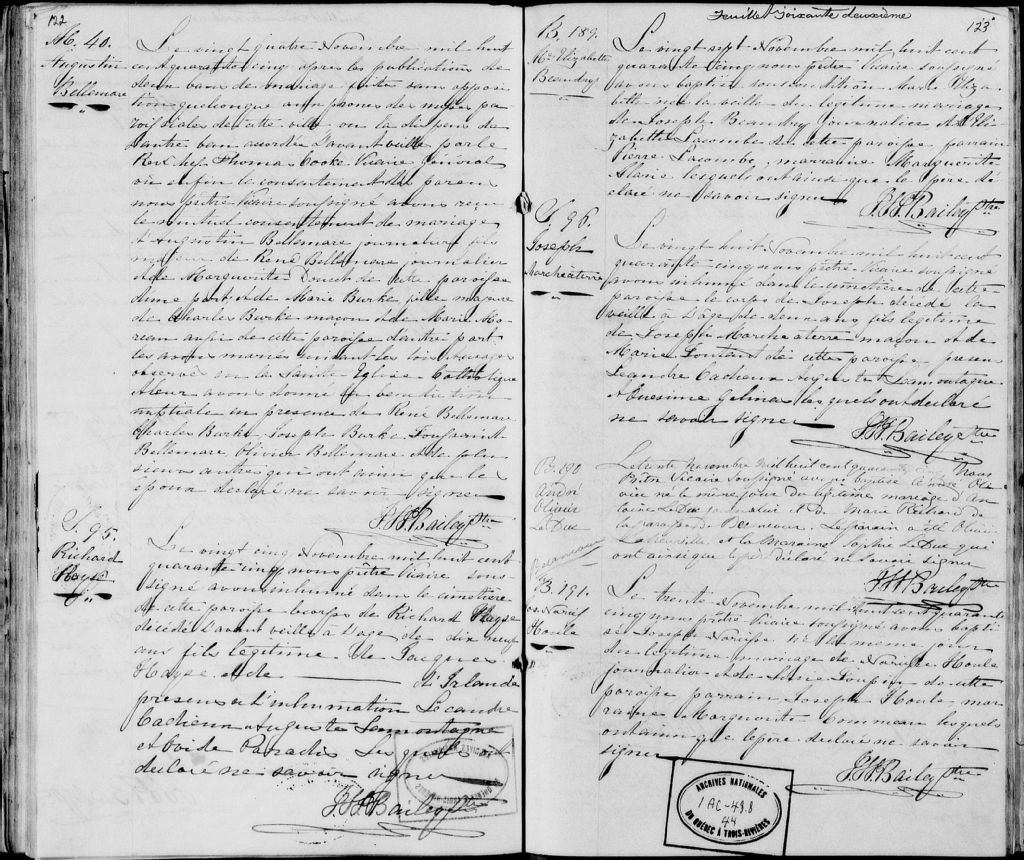 122
M. 40.
Augustin
Bellemare
Le vingt quatre Novembre mil huit
cent quarante cinq après la publication de
deux bans de mariage faite sans opposi
tion quelconque aux prones des messes pa-
roissiales de cette ville vu la dispense de
l'autre ban accordée l'avant veille par le
Rev. Thomas Cooke Vicaire Général
vu enfin le consentement des parens
nous prêtre Vicaire soussigné avons reçu
le mutuel consentement de mariage
d'Augustin Bellemare journalier fils
majeur de René Bellemare journalier
et de Marguerite Doucet de cette paroisse
d'une part et de Marie Burke fille majeure
de Charles Burke maçon et de Marie Mo-
reau aussi de cette paroisse d'autre part
les avons mariés suivant les lois et usages
observés en la Sainte Eglise Catholique
et leur avons donné la bénédiction
nuptiale en présence de René Bellemare
Charles Burke Joseph Burke Toussaint
Bellemare, Olivier Bellemare et de plu-
sieurs autres qui ont ainsi que le
époux déclaré ne savoir signer
Bailey Ptre
S. 95.
Richard
Hayse
Le vingt cinq Novembre mil huit cent
quarante cinq nous prêtre Vicaire sous-
signé avons inhumé dans le cimetière
de cette paroisse le corps de Richard Hayse
décédé l'avant veille à l'age de dix neuf
ans fils légitime de Jacques
Hayse et de d'Irlande
présens à l'inhumation Léandre
Cacheux Auguste Lamontagne
et Paradis Les quels ont
déclaré ne savoir signer
Bailey Ptre
Feuillet Soixante deuxième
123
B. 189.
Mie Elizabeth
Beaudry
Le vingt sept Novembre mil huit cent
quarante cinq nous prêtre Vicaire soussigné
avons baptisé sous condition Marie Eliza
beth née la veille du légitime mariage
de Joseph Beaudry journalier et d'Eli
zabeth Lacombe de cette paroisse parrain
Pierre Lacombe, marraine Marguerite
Alarie lesquels ont ainsi que le père dé
claré ne savoir signer
Bailey Ptre
S. 96.
Joseph
Marcheaterre
Le vingt huit Novembre mil huit cent
quarante cinq nous prêtre Vicaire soussigné
avons inhumé dans le cimetière de cette
paroisse le corps de Joseph décédé la
veille à l'age de deux ans fils légitime
de Joseph Marcheaterre maçon et de
Marie de cette paroisse présens
Léandre Cacheux Auguste Lamontagne
et Gelinas lesquels ont déclaré
ne savoir signer
Bailey Ptre
B. 190
André
Olivier
Le Duc
Le trente Novembre mil huit cent quarante cinq Nous
Prêtre Vicaire Soussigné avons baptisé André Oli
vier né le même jour du légitime mariage d'An
toine Le Duc journalier et de Marie Richard de
la paroisse Le parrain a été Olivier
et la Marraine Sophie Le Duc qui
ont ainsi que le père déclaré ne savoir signer
Bailey Ptre
B. 191.
Jos. Narcis
Houle
Le trente Novembre mil huit cent quarante
cinq nous prêtre Vicaire soussigné avons bapti
sé Joseph Narcisse né le même jour
du légitime mariage de Narcisse Houle
journalier et de Lupien de cette
paroisse parrain Joseph Houle, mar
raine Marguerite Commeau lesquels
ont ainsi que le père déclaré ne savoir
signer
Bailey Ptre
ARCHIVES NATIONALES
1 AC-488
44
DU QUÉBEC À TROIS-RIVIÈRES